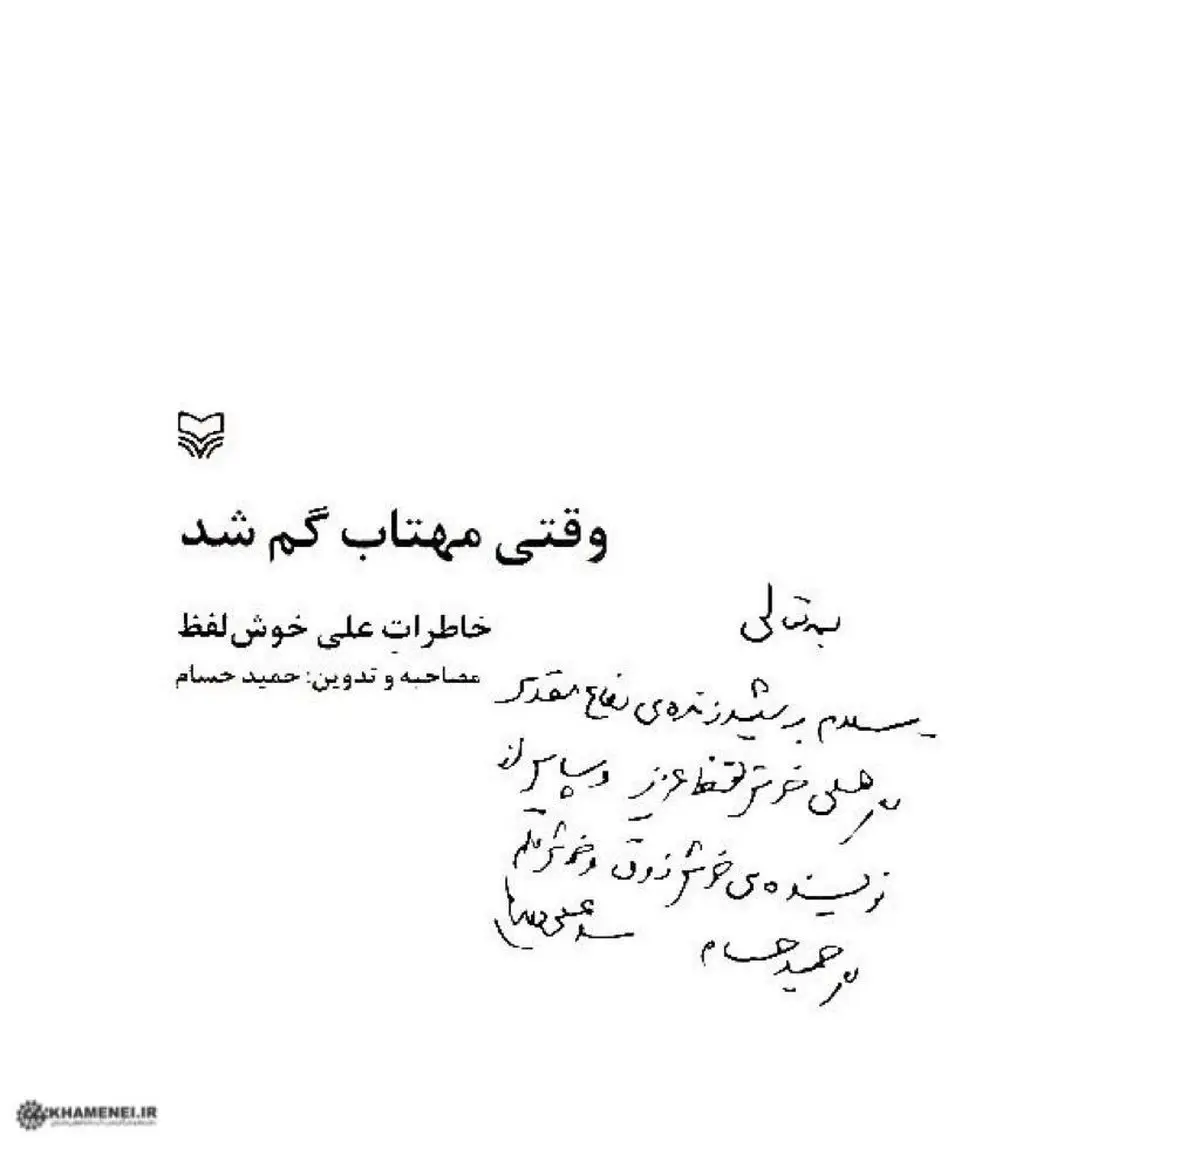 وقتی مهتاب گم شد
خاطراتِ علی خوش‌لفظ
مصاحبه و تدوین: حمید حسام
بسمه‌تعالی
سلام بر شهید زنده‌ی دفاع مقدس
علی خوش‌لفظ عزیز و سپاس از
نویسنده‌ی خوش ذوق و خوش قلم
حمید حسام
سید علی خامنه‌ای
KHAMENEI.IR